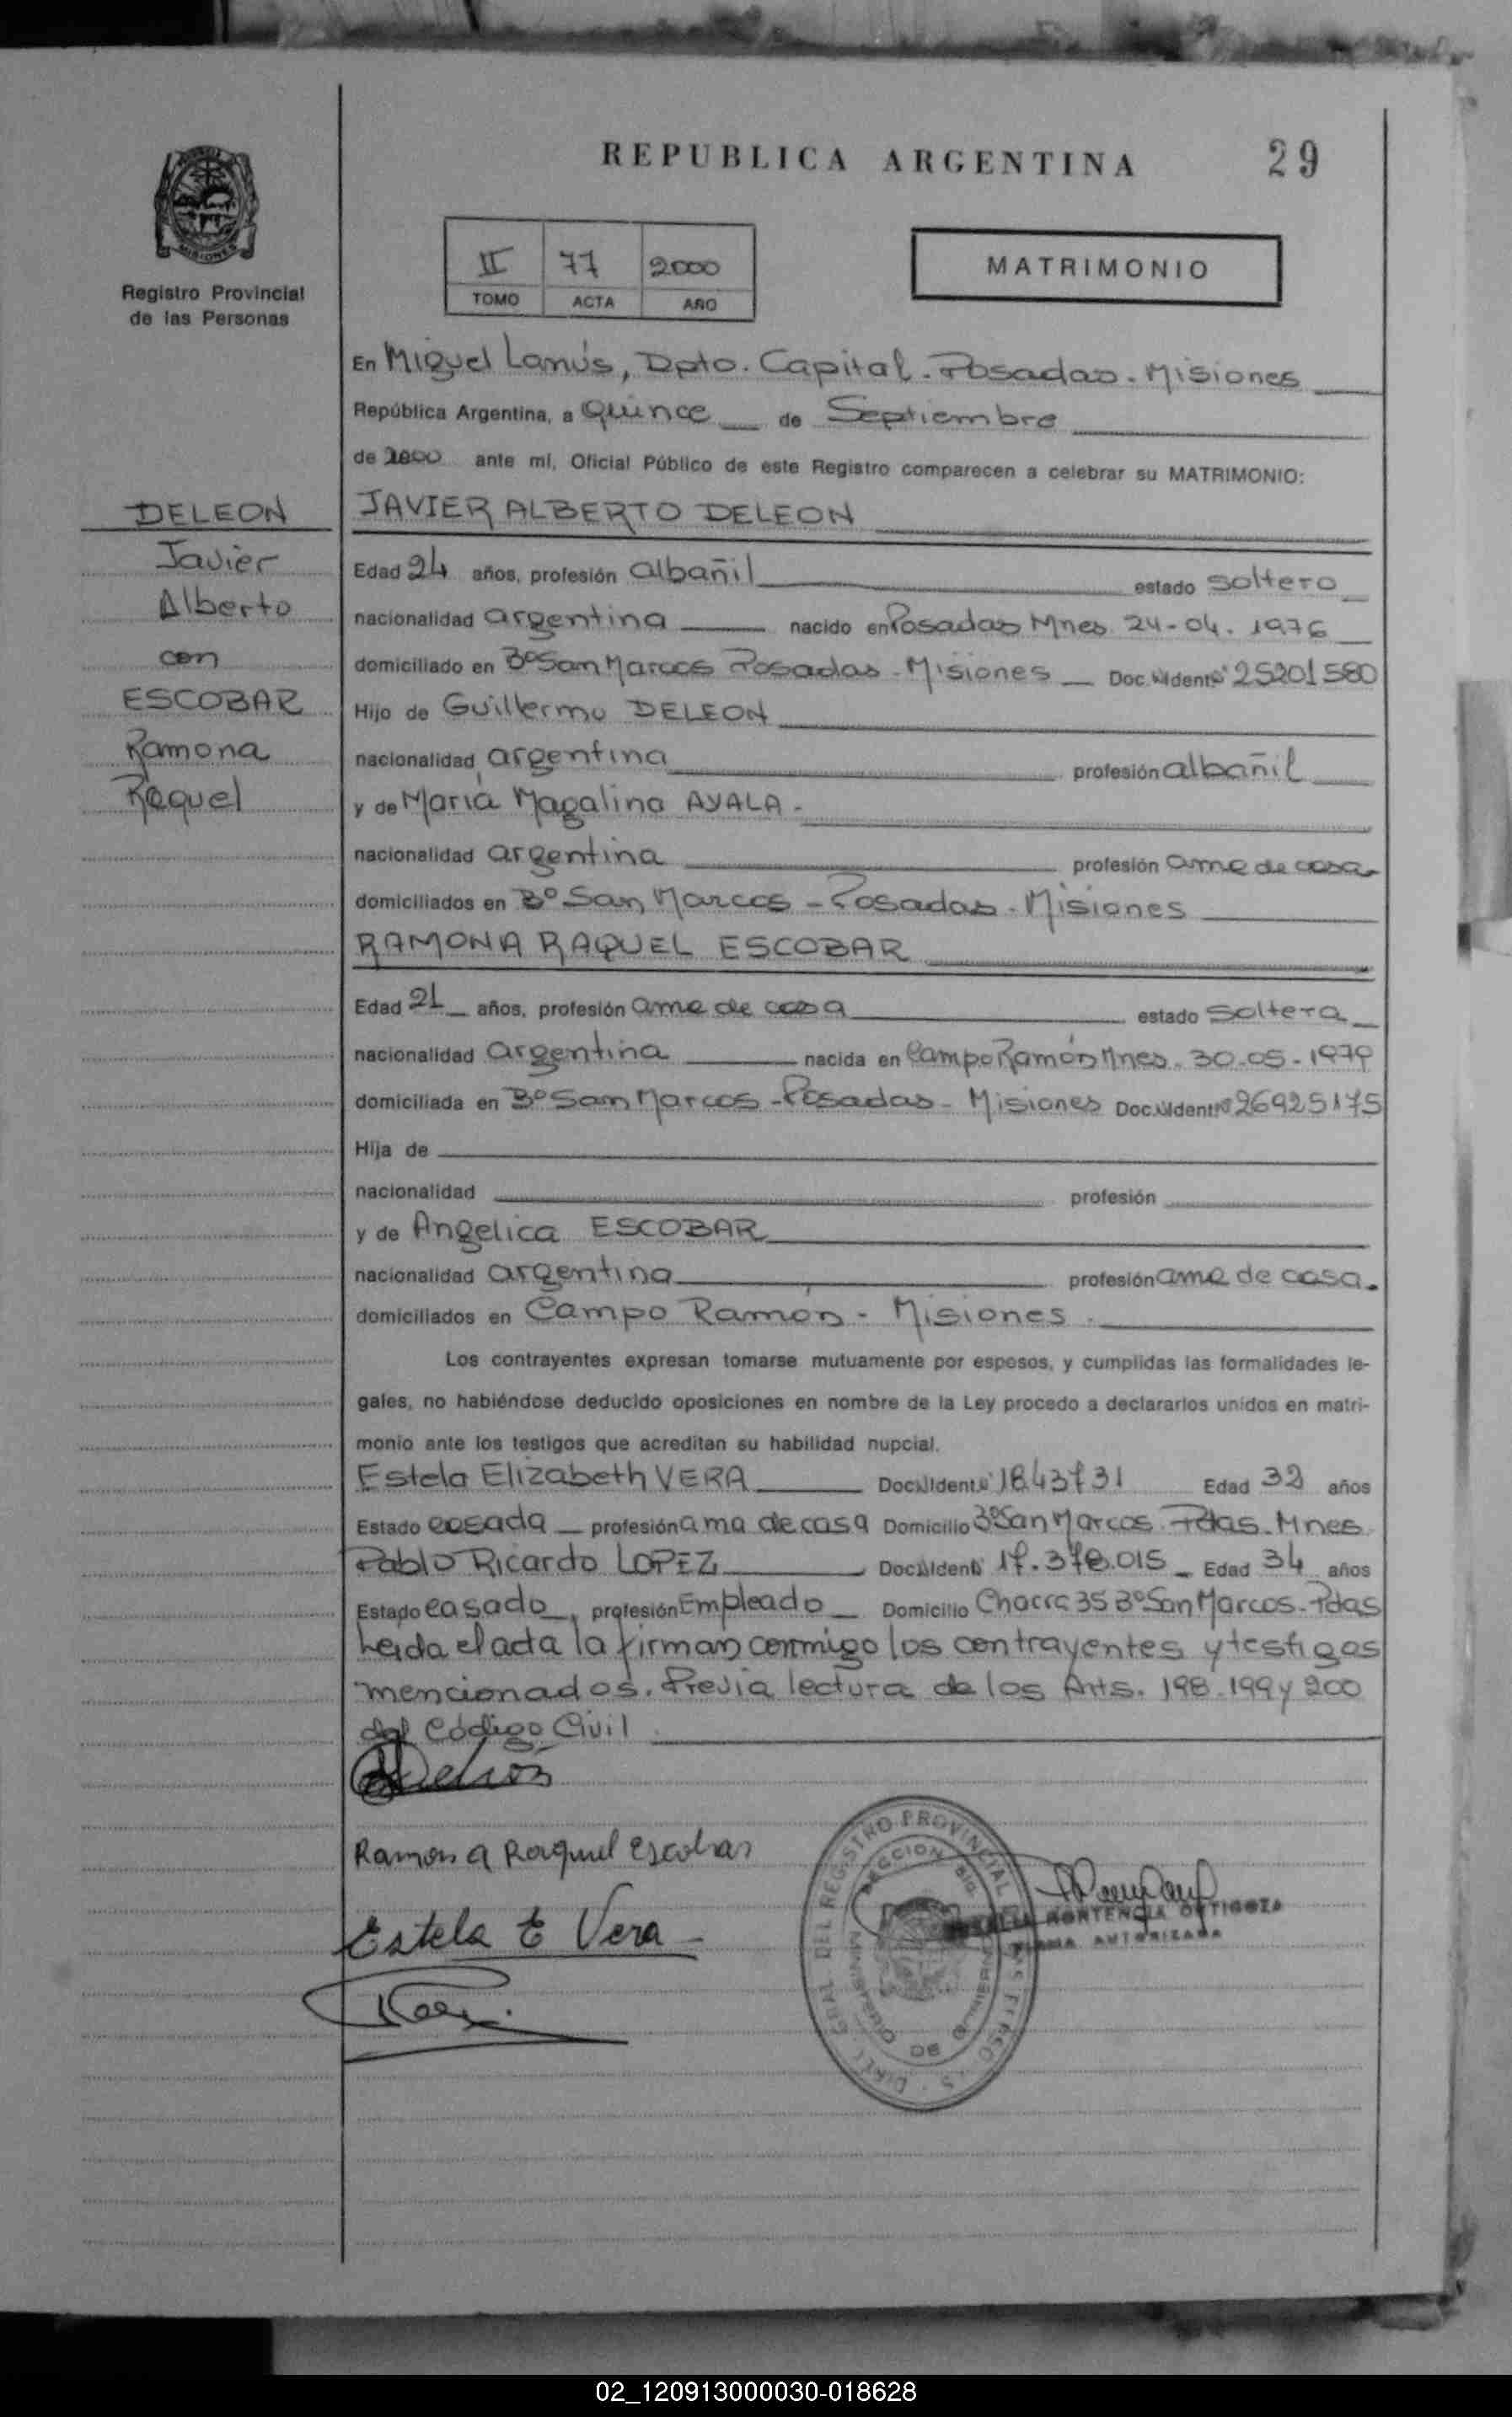 REPUBLICA ARGENTINA
29
MISIONES
Registro Provincial
de las Personas
II 77 2000
TOMO ACTA AÑO
MATRIMONIO
En Miguel Lanús, Dpto. Capital - Posadas - Misiones
República Argentina, a Quince de Septiembre
de 2000 ante mí, Oficial Público de este Registro comparecen a celebrar su MATRIMONIO:
DELEON
Javier
Alberto
con
ESCOBAR
Ramona
Raquel
JAVIER ALBERTO DELEON
Edad 24 años, profesión albañil estado soltero
nacionalidad argentina nacido en Posadas Mnes. 24-04-1976
domiciliado en Bº San Marcos Posadas - Misiones Doc. Ident. 25201580
Hijo de Guillermo DELEON
nacionalidad argentina profesión albañil
y de Maria Magalina AYALA -
nacionalidad argentina profesión ama de casa
domiciliados en Bº San Marcos - Posadas - Misiones
RAMONA RAQUEL ESCOBAR
Edad 21 años, profesión ama de casa estado soltera
nacionalidad argentina nacida en Campo Ramón Mnes. 30-05-1979
domiciliada en Bº San Marcos - Posadas - Misiones Doc. Ident. 26925175
Hija de
nacionalidad profesión
y de Angelica ESCOBAR
nacionalidad argentina profesión ama de casa.
domiciliados en Campo Ramón - Misiones.
Los contrayentes expresan tomarse mutuamente por esposos, y cumplidas las formalidades le-
gales, no habiéndose deducido oposiciones en nombre de la Ley procedo a declararlos unidos en matri-
monio ante los testigos que acreditan su habilidad nupcial.
Estela Elizabeth VERA Doc. Ident. Edad 32 años
Estado casada profesión ama de casa Domicilio Bº San Marcos. Pdas. Mnes.
Pablo Ricardo LOPEZ Doc. Ident. 17.378.015 Edad 34 años
Estado casado, profesión Empleado Domicilio Chacra 35 Bº San Marcos - Pdas
Leída el acta la firman conmigo los contrayentes y testigos
mencionados. Previa lectura de los Arts. 198-199 y 200
del Código Civil
Deleón
Ramona Raquel escobar
Estela E Vera
HORTENCIA ORTIGOZA
FIRMA AUTORIZADA
DEL REGISTRO PROVINCIAL DE
02_120913000030-018628